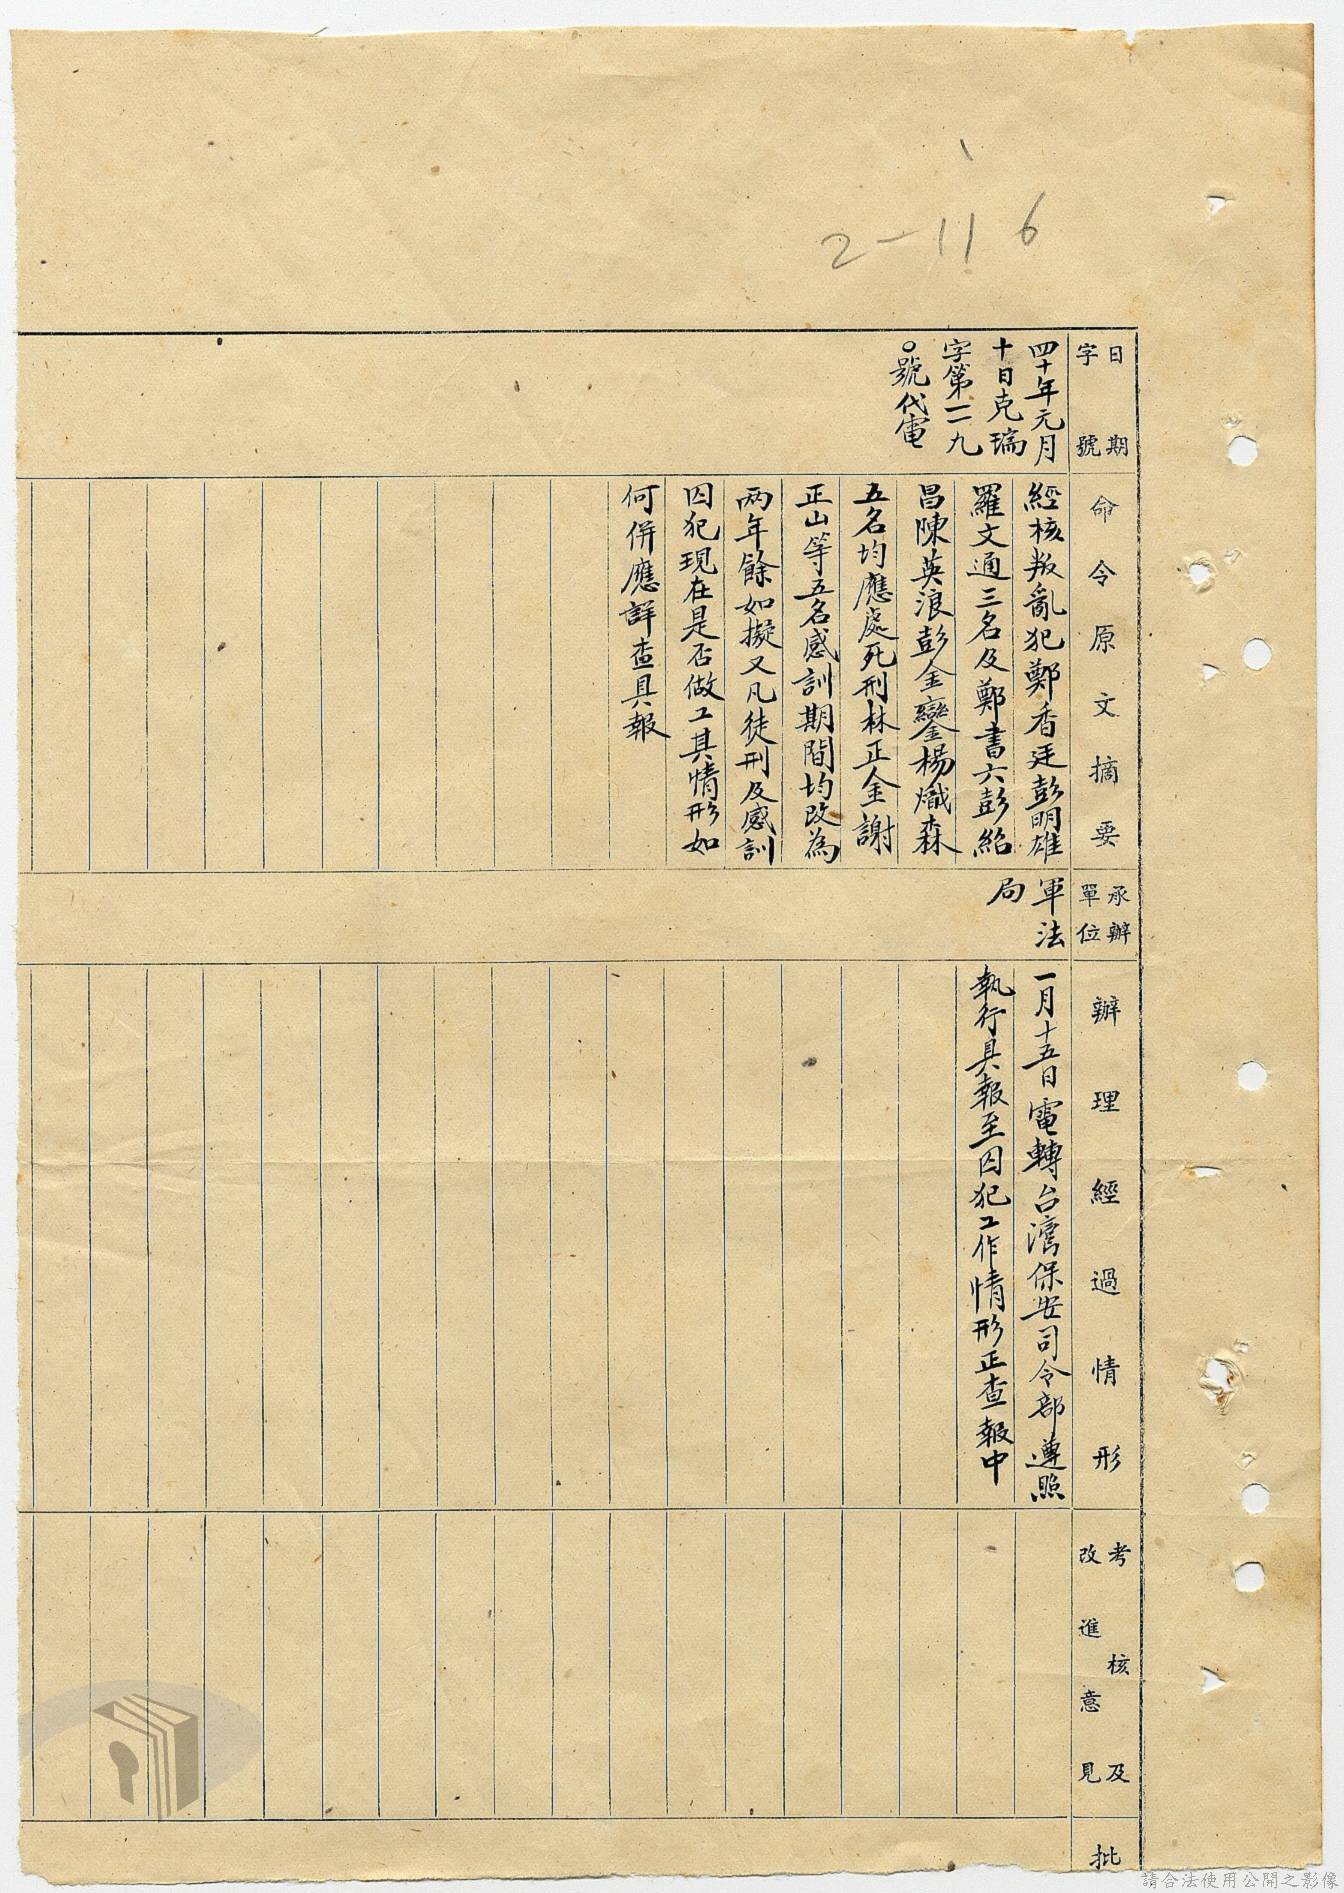 2-11 6
日期
字號
命令原文摘要
承辦
單位
辦理經過情形
考核及
改進意見
批
四十年元月
十日克瑞
字第一一九
〇號代電
經核叛亂犯鄭香廷彭明雄
羅文通三名及鄭書六彭紹
昌陳英浪彭金鑾楊熾森
五名均應處死刑林正金謝
正山等五名感訓期間均改為
兩年餘如擬又凡徒刑及感訓
囚犯現在是否做工其情形如
何併應詳查具報
軍法
局
一月十五日電轉台灣保安司令部遵照
執行具報至囚犯工作情形正查報中
請合法使用公開之影像